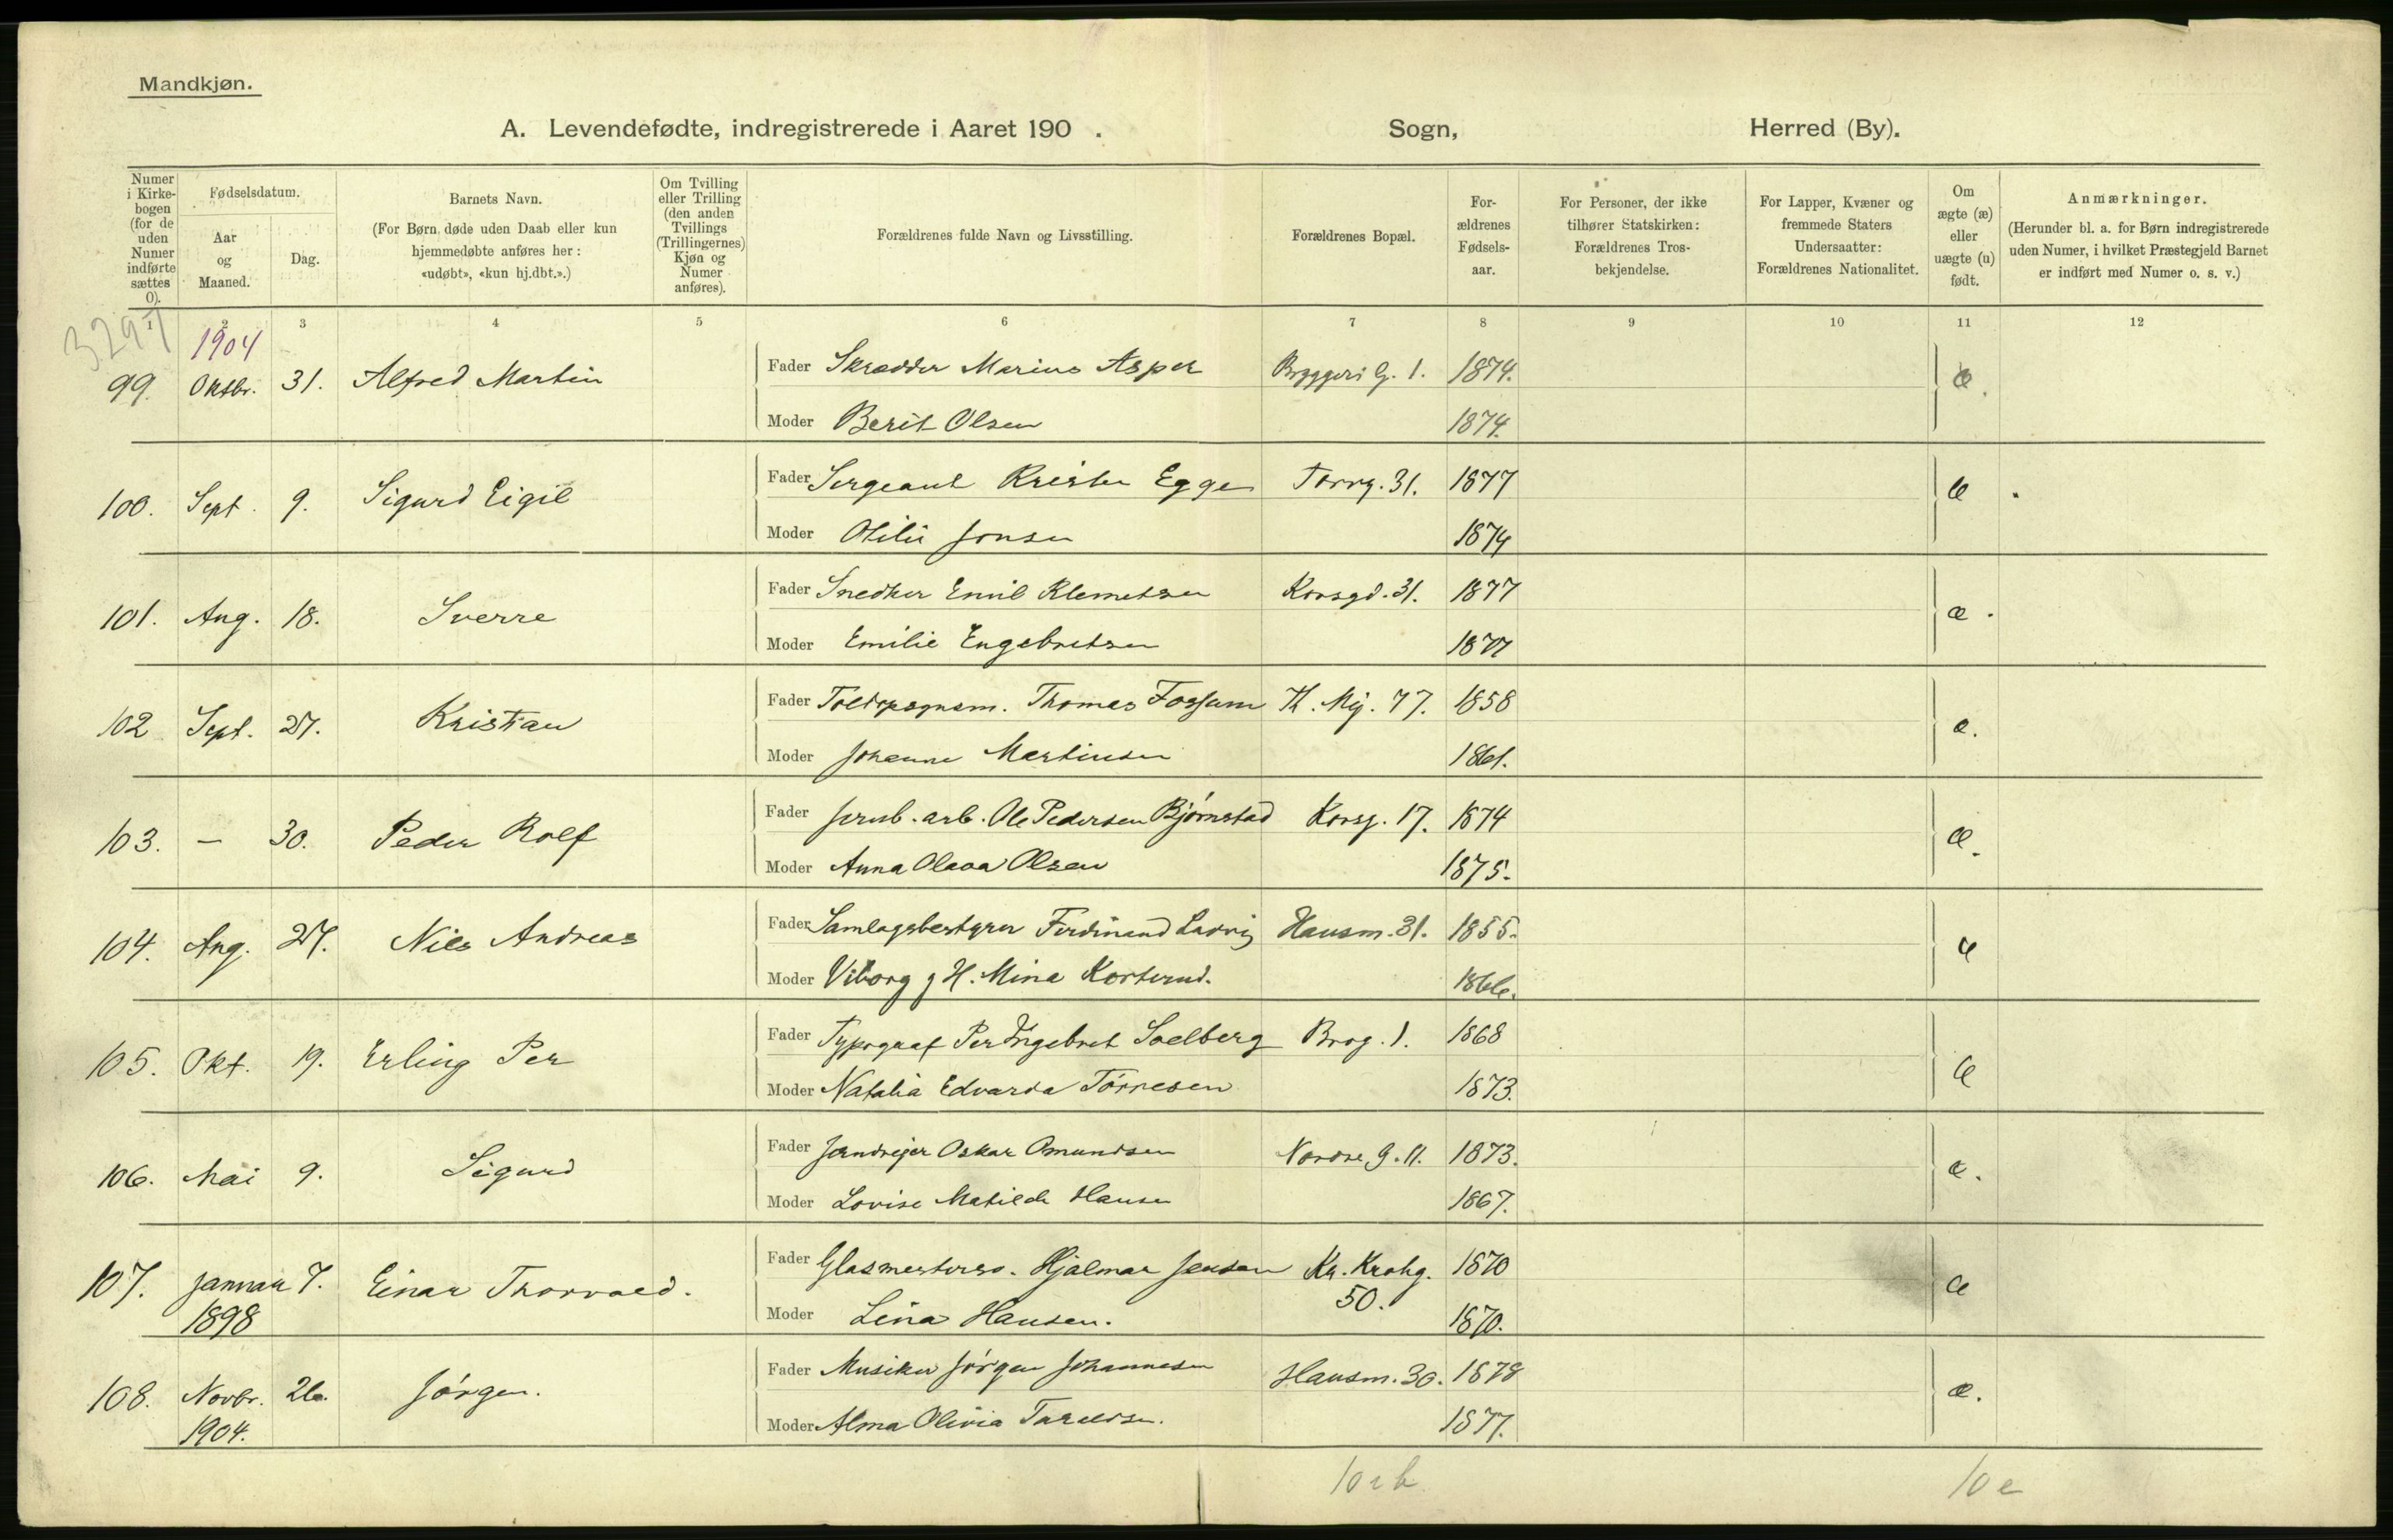 Mandkjøn.
A. Levendefødte, indregistrerede i Aaret 190 . Sogn, Herred (By).
Numer i Kirkebogen (for de uden Numer indførte sættes 0).
Fødselsdatum.
Aar og Maaned.
Dag.
Barnets Navn.
(For Børn døde uden Daab eller kun hjemmedøbte anføres her: «udøbt», «kun hj.dbt.».)
Om Tvilling eller Trilling (den anden Tvillings (Trillingernes) Kjøn og Numer anføres).
Forældrenes fulde Navn og Livsstilling.
Forældrenes Bopæl.
Forældrenes Fødselsaar.
For Personer, der ikke tilhører Statskirken: Forældrenes Trosbekjendelse.
For Lapper, Kvæner og fremmede Staters Undersaatter: Forældrenes Nationalitet.
Om ægte (æ) eller uægte (u) født.
Anmærkninger.
(Herunder bl. a. for Børn indregistrerede uden Numer, i hvilket Præstegjeld Barnet er indført med Numer o. s. v.)
1 2 3 4 5 6 7 8 9 10 11 12
3297
1904
99. Oktbr. 31. Alfred Martin Fader Skrædder Marius Asper Bryggeri G. 1. 1874. æ.
Moder Berit Olsen 1874.
100. Sept. 9. Sigurd Eigil Fader Sergeant Krister Egge Torvg. 31. 1877 æ
Moder Otilie Jonsen 1874
101. Aug. 18. Sverre Fader Snedker Emil Klemetsen Korsgd. 31. 1877 æ.
Moder Emilie Engebretsen 1877
102 Sept. 27. Kristian Fader Thomas Fossum Th. Mg. 77. 1858 æ.
Moder Johanne Martinsen 1861.
103. — 30. Peder Rolf Fader Jernb. arb. Ole Pedersen Bjørnstad Korsg. 17. 1874 æ.
Moder Anna Olava Olsen 1875.
104. Aug. 27. Nils Andreas Fader Samlagsbestyrer Ferdinand Ludvig Hausm. 31. 1855. æ
Moder Viborg g H. Mina Korterud. 1866.
105. Okt. 19. Erling Per Fader Typograf Per Ingebret Soelberg Brog. 1. 1868 æ
Moder Natalia Edvarda Tørresen 1873.
106. Mai 9. Sigurd Fader Oskar Omundsen Nordre G. 11. 1873. æ.
Moder Lovise Matilde Hansen 1867.
107. Januar 7. Einar Thorvald. Fader Glasmestersv. Hjalmar Jensen Kr. Krohg. 1870 æ
1898 Moder Lina Hansen. 50. 1870.
108. Novbr. 26. Jørgen. Fader Musiker Jørgen Johannesen Hausm. 30. 1878 æ.
1904. Moder Alma Olivia 1877.
10 e